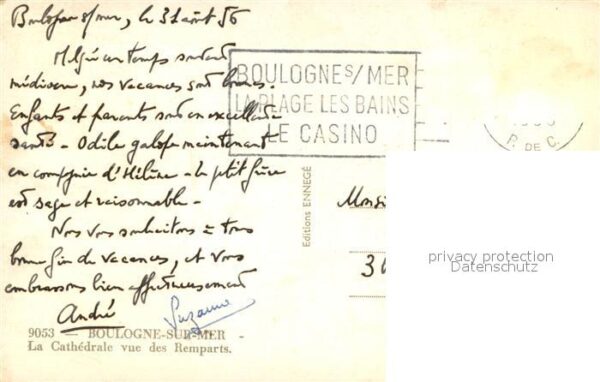 Boulogne s/mer, le 31 août 56
Malgré un temps surtout
médiocre, nos vacances sont bonnes.
Enfants et parents sont en excellente
santé - Odile galope maintenant
en compagnie d'Hélène - le petit frère
est sage et raisonnable -
Nous vous souhaitons à tous
bonne fin de vacances, et vous
embrassons bien affectueusement
André
Suzanne
9053 — BOULOGNE-SUR-MER -
La Cathédrale vue des Remparts.
BOULOGNE S/MER
LA PLAGE LES BAINS
LE CASINO
P. DE C.
Editions ENNEGÉ
Monsi
30
privacy protection
Datenschutz